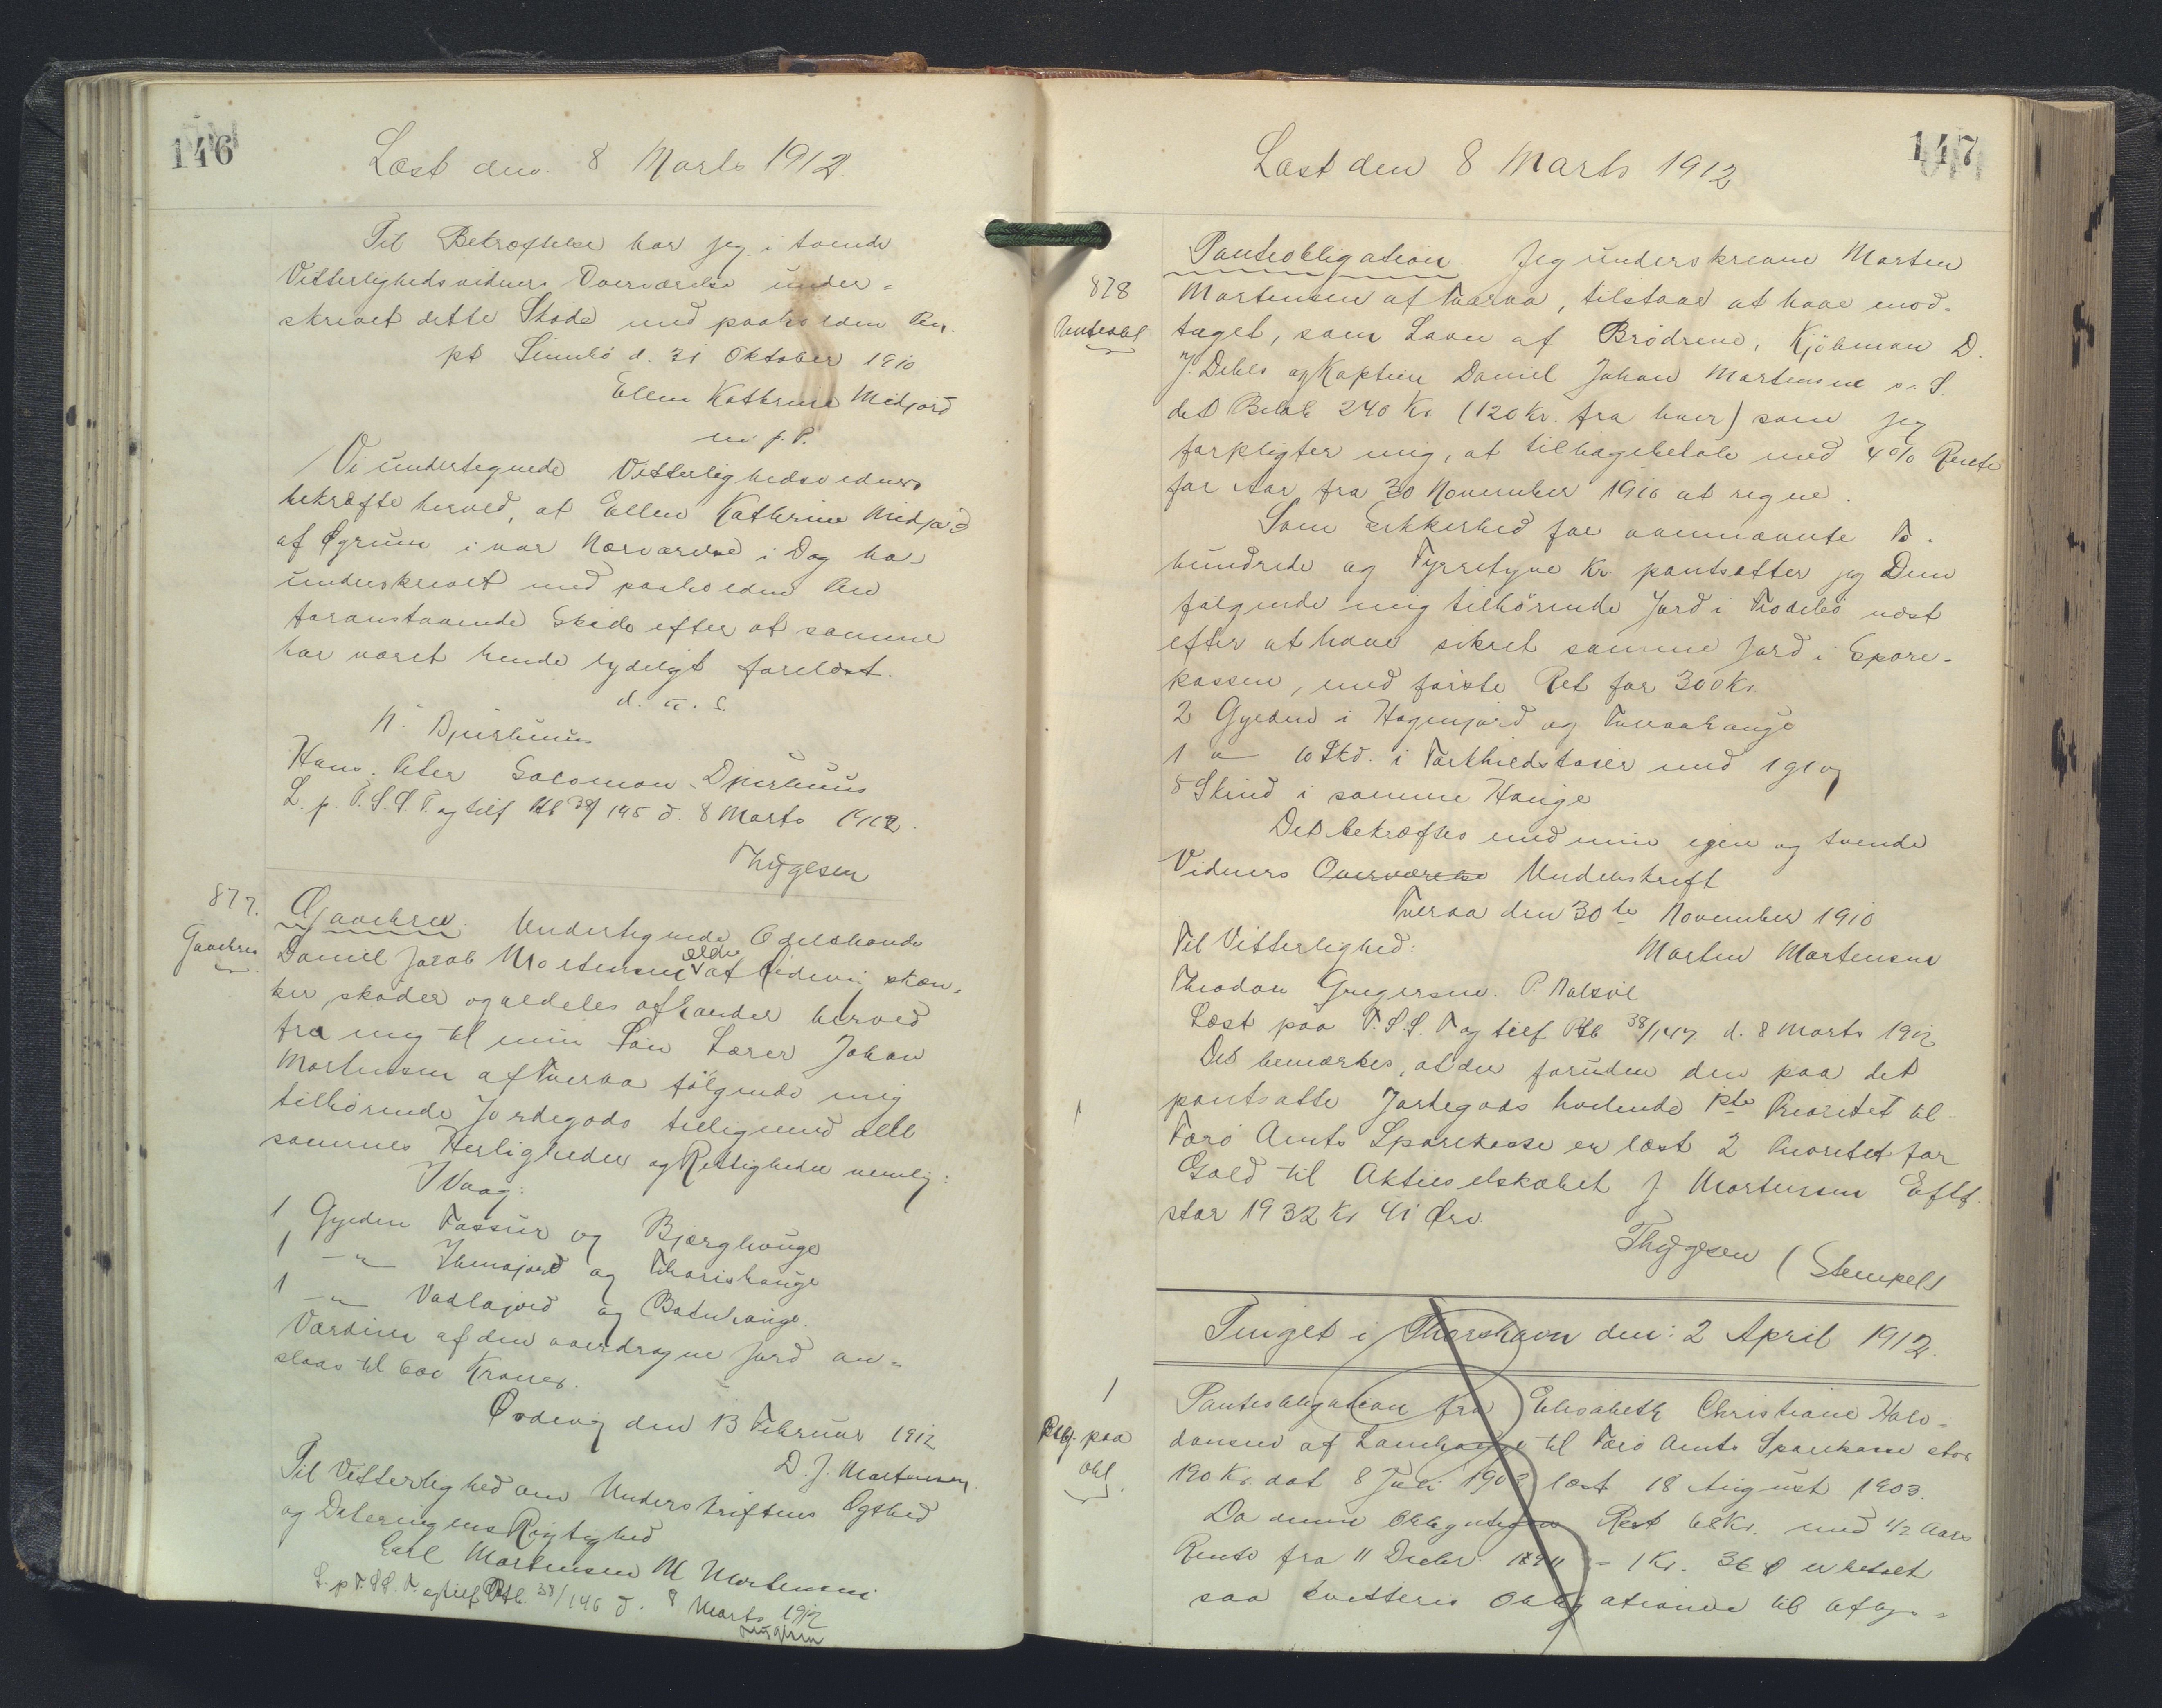 146
Læst den 8 Marts 1912.
Til Bekræftelse har jeg i tvende
Vitterlighedsvidners Overværelse under=
skrevet dette Skøde med paaholden Pen.
pt Sumbø d. 31 Oktober 1910
Ellen Kathrine Midjord
m. f. P.
Vi undertegnede Vitterlighedsvidner
bekræfte herved, at Ellen Kathrine Midjord
af Øgrum i vor Nærværelse i Dag ha-
underskrevet med paaholden Pen
foranstaaende Skøde efter at samme
har været hende tydeligt forelæst.
d. u. s.
N. Djurhuus
Hans Peter Solomon Djurhuus
L. p. F. S. S. T. og tilf Ptb 38/145 d. 8 Marts 1912.
Thygesen
877.
Gavebrev
Gavebrev. Undertegnede Odelsbonde
Daniel Jacob Mortensen ældre af Ørdevig skæn-
ker, skøder og aldeles afhænder herved
fra mig til min Søn Lærer Johan
Mortensen af Tveraa følgende mig
tilhørende Jordegods tilligemed alle
sammes Herligheder og Rettigheder nemlig:
I Vaag:
1 Gylden Fassur og Bjørghauge
1 -"- Hemajord og Thorishauge
1 -"- Vadlajord og Batnhauge.
Værdien af den overdragne Jord an=
slaas til 600 Kroner.
Ørdevig den 13 Februar 1912
D. J. Mortensen
Til Vitterlighed om Underskriftens Ægthed
og Dateringens Rigtighed
Carl Mortensen M Mortensen
L. p F. S S. T. og tilf Ptb. 38/146 d. 8 Marts 1912
Thygesen
147
Læst den 8 Marts 1912
878
Panteobl
Panteobligation. Jeg underskrevne Morten
Mortensen af Tveraa, tilstaar at have mod-
taget, som Laan af Brødrene, Kjøbman D.
J. Debes og Kaptein Daniel Johan Mortensen s. S
det Beløb 240 Kr. (120 Kr. fra hver) som jeg
forpligter mig, at tilbagebetale med 4% Rente
for Aar fra 30 November 1910 at regne.
Som Sikkerhed for ovennævnte To-
hundrede og Fyrretyve Kr pantsætter jeg Dem
følgende mig tilhørende Jord i Frodebø næst
efter at have sikret samme Jord i Spare-
kassen, med første Ret for 300 Kr.
2 Gylden i Hagenjord og Tveraahauge
1 " 10 Skd. i med 1 gl og
8 Skind i samme Hauge
Det bekræftes med min egen og tvende
Vidners Overværelse Underskrift
Tveraa den 30te November 1910
Til Vitterlighed:
Morten Mortensen
Theodor Gregersen. P. Nalsøe
Læst paa F. S. S. T og tilf Ptb 38/147 d. 8 Marts 1912
Det bemærkes, at der foruden den paa det
pantsatte Jordegods hvilende 1ste Prioritet til
Færø Amts Sparekasse er læst 2 Prioritet for
Gæld til Aktieselskabet J Mortensens Eftf.
stor 1932 Kr 41 Øre.
Thygesen (Stempel)
Tinget i Thorshavn den: 2 April 1912.
1
paa
Obl.
Panteobligation fra Elisabeth Christiane Halv-
dansen af Lamhauge til Færø Amts Sparekasse stor
190 Kr. dat 8 Juli 1903 læst 18 August 1903.
Da denne Obligations Rest med 1/2 Aars
Rente fra 11 Decbr. 1911 = 1 Kr. 36 Ø er betalt
saa kvitteres Obligationen til Aflys=